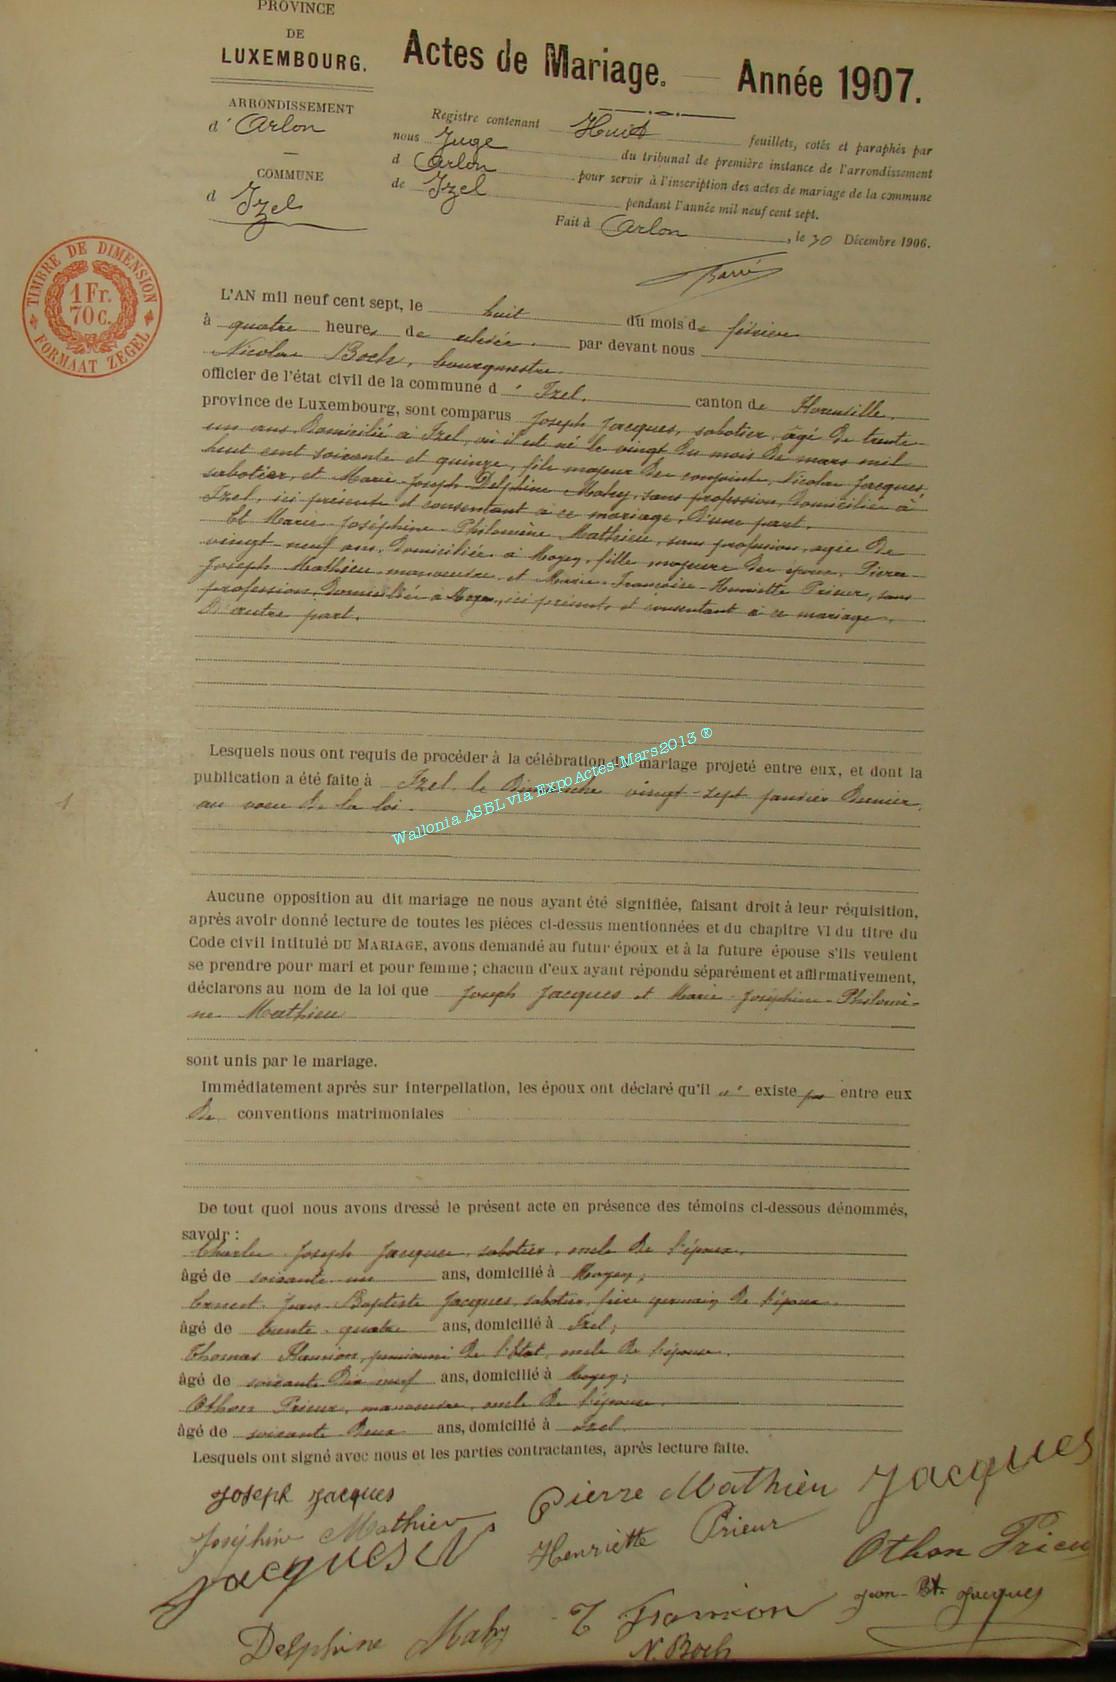 PROVINCE
DE
LUXEMBOURG.
Actes de Mariage. — Année 1907.
ARRONDISSEMENT
d' Arlon
COMMUNE
d Izel
Registre contenant Huit feuillets, cotés et paraphés par
nous Juge du tribunal de première instance de l'arrondissement
d Arlon pour servir à l'inscription des actes de mariage de la commune
de Izel pendant l'année mil neuf cent sept.
Fait à Arlon, le 30 Décembre 1906.
TIMBRE DE DIMENSION
1 Fr.
70 c.
FORMAAT ZEGEL
L'AN mil neuf cent sept, le huit du mois de février
à quatre heures de relevée par devant nous
Nicolas Boch, bourgmestre
officier de l'état civil de la commune d'Izel, canton de Florenville,
province de Luxembourg, sont comparus Joseph Jacques, sabotier, âgé de trente-
un ans, domicilié à Izel, où il est né le vingt du mois de mars mil
huit cent soixante et quinze, fils majeur des conjoints, Nicolas Jacques,
sabotier, et Marie-Joseph-Delphine Mahy, sans profession, domiciliés à
Izel, ici présents et consentant à ce mariage, d'une part.
Et Marie-Joséphine-Philomène Mathieu, sans profession, agée de
vingt-neuf ans, domiciliée à Moyen, fille majeure des époux, Pierre-
Joseph Mathieu, manoeuvre, et Marie-Françoise-Henriette Prieur, sans
profession, domiciliés à Moyen, ici présents et consentant à ce mariage,
D'autre part.
Lesquels nous ont requis de procéder à la célébration du mariage projeté entre eux, et dont la
publication a été faite à Izel, le Dimanche vingt-sept janvier dernier,
au voeu de la loi.
Wallonia ASBL via Expo Actes-Mars2013 ®
Aucune opposition au dit mariage ne nous ayant été signifiée, faisant droit à leur réquisition,
après avoir donné lecture de toutes les pièces ci-dessus mentionnées et du chapitre VI du titre du
Code civil intitulé DU MARIAGE, avons demandé au futur époux et à la future épouse s'ils veulent
se prendre pour mari et pour femme; chacun d'eux ayant répondu séparément et affirmativement,
déclarons au nom de la loi que Joseph Jacques et Marie-Joséphine-Philomè-
ne Mathieu
sont unis par le mariage.
Immédiatement après sur interpellation, les époux ont déclaré qu'il n' existe pas entre eux
de conventions matrimoniales
De tout quoi nous avons dressé le présent acte en présence des témoins ci-dessous dénommés,
savoir :
Charles-Joseph Jacques, sabotier, oncle de l'époux,
âgé de soixante-un ans, domicilié à Moyen;
Ernest-Jean-Baptiste Jacques, sabotier, frère germain de l'époux
âgé de trente-quatre ans, domicilié à Izel;
Thomas Flamion, pensionné de l'Etat, oncle de l'épouse,
âgé de soixante dix neuf ans, domicilié à Moyen;
Othon Prieur, manoeuvre, oncle de l'épouse,
âgé de soixante-deux ans, domicilié à Izel.
Lesquels ont signé avec nous et les parties contractantes, après lecture faite.
Joseph Jacques
Pierre Mathieu
Jacques
Joséphine Mathieu
Henriette Prieur
Othon Prieur
Jacques N
Jean-Bte Jacques
Delphine Mahy
T Flamion
N. Boch